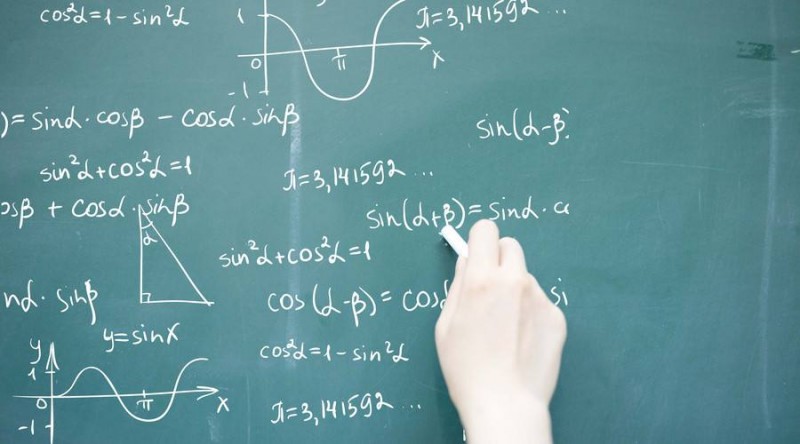 cos²α=1-sin²α
π=3,141592...
1
0
π
x
-1
)=sinα·cosβ - cosα·sinβ
sin(α-β)
sin²α+cos²α=1
π=3,141592...
osβ + cosα·sinβ
sin(α+β)=sinα·c
α
sin²α+cos²α=1
nα·sinβ
cos(α-β)=cosα
si
y=sinx
cos²α=1-sin²α
y
1
0
π
x
-1
π=3,141592...